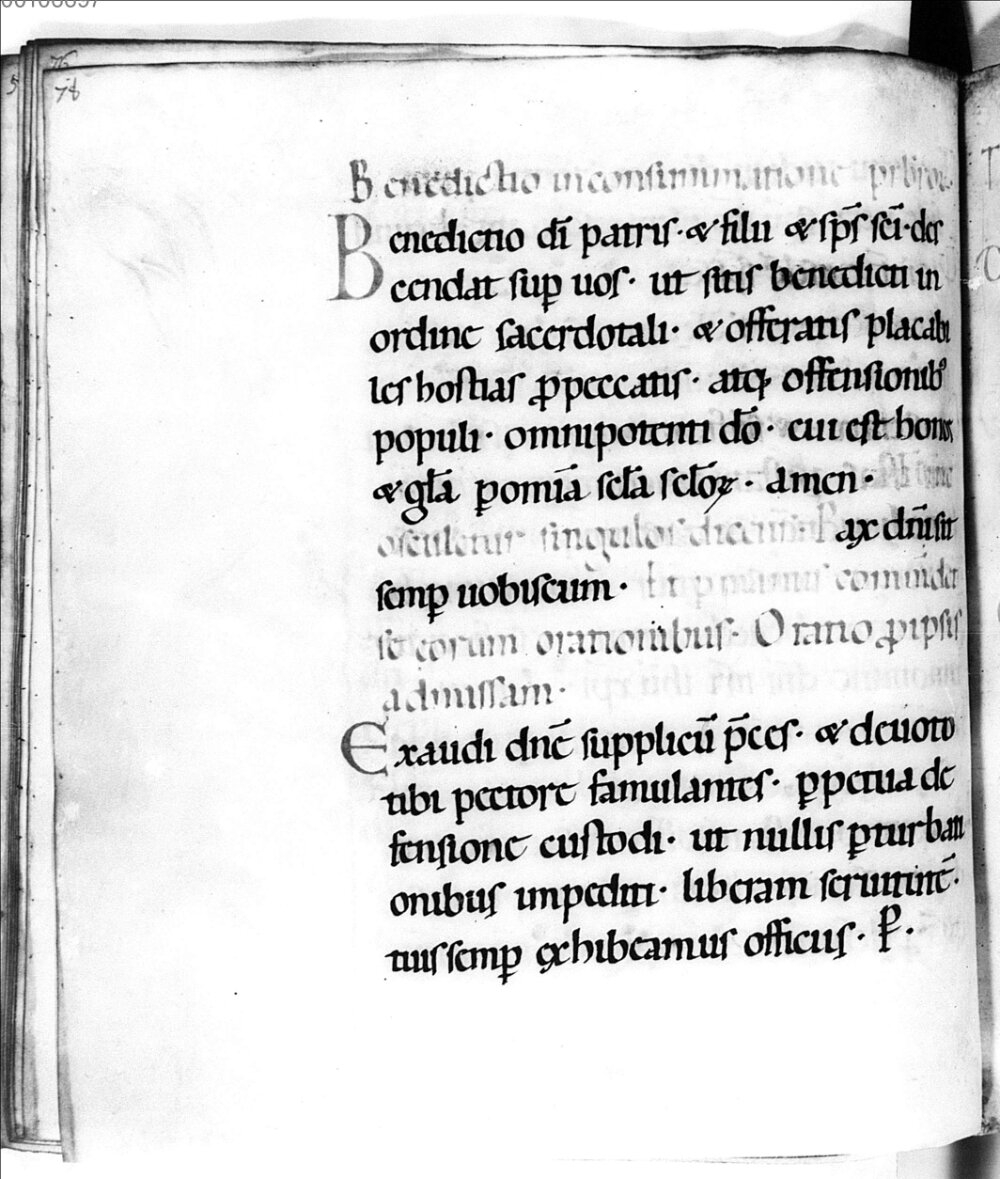 76
78
Benedictio inconsummatione prbrorū.
Benedictio dī patris · & filii & sp̄s sc̄i · des
cendat sup̱ uos · ut sitis benedicti in
ordine sacerdotali · & offeratis placabi
les hostias ꝓ peccatis · atq; offensionibꝰ
populi · omnipotenti dō · cui est honor
& gl̄a ꝑ om̄ia scl̄a scl̄oꝝ · amen ·
osculetur singulos dicens Pax dn̄i sit
semp̱ uobiscum · Et primus commdet
se eorum orationibus · Oratio ꝓ ipsis
ad missam ·
Exaudi dn̄e supplicū p̄ces · & deuoto
tibi pectore famulantes · ꝑpetua de
fensione custodi · ut nullis ꝑturbati
onibus impediti · liberam seruitutē ·
tuis semp̱ exhibeamus officiis · P̱ ·